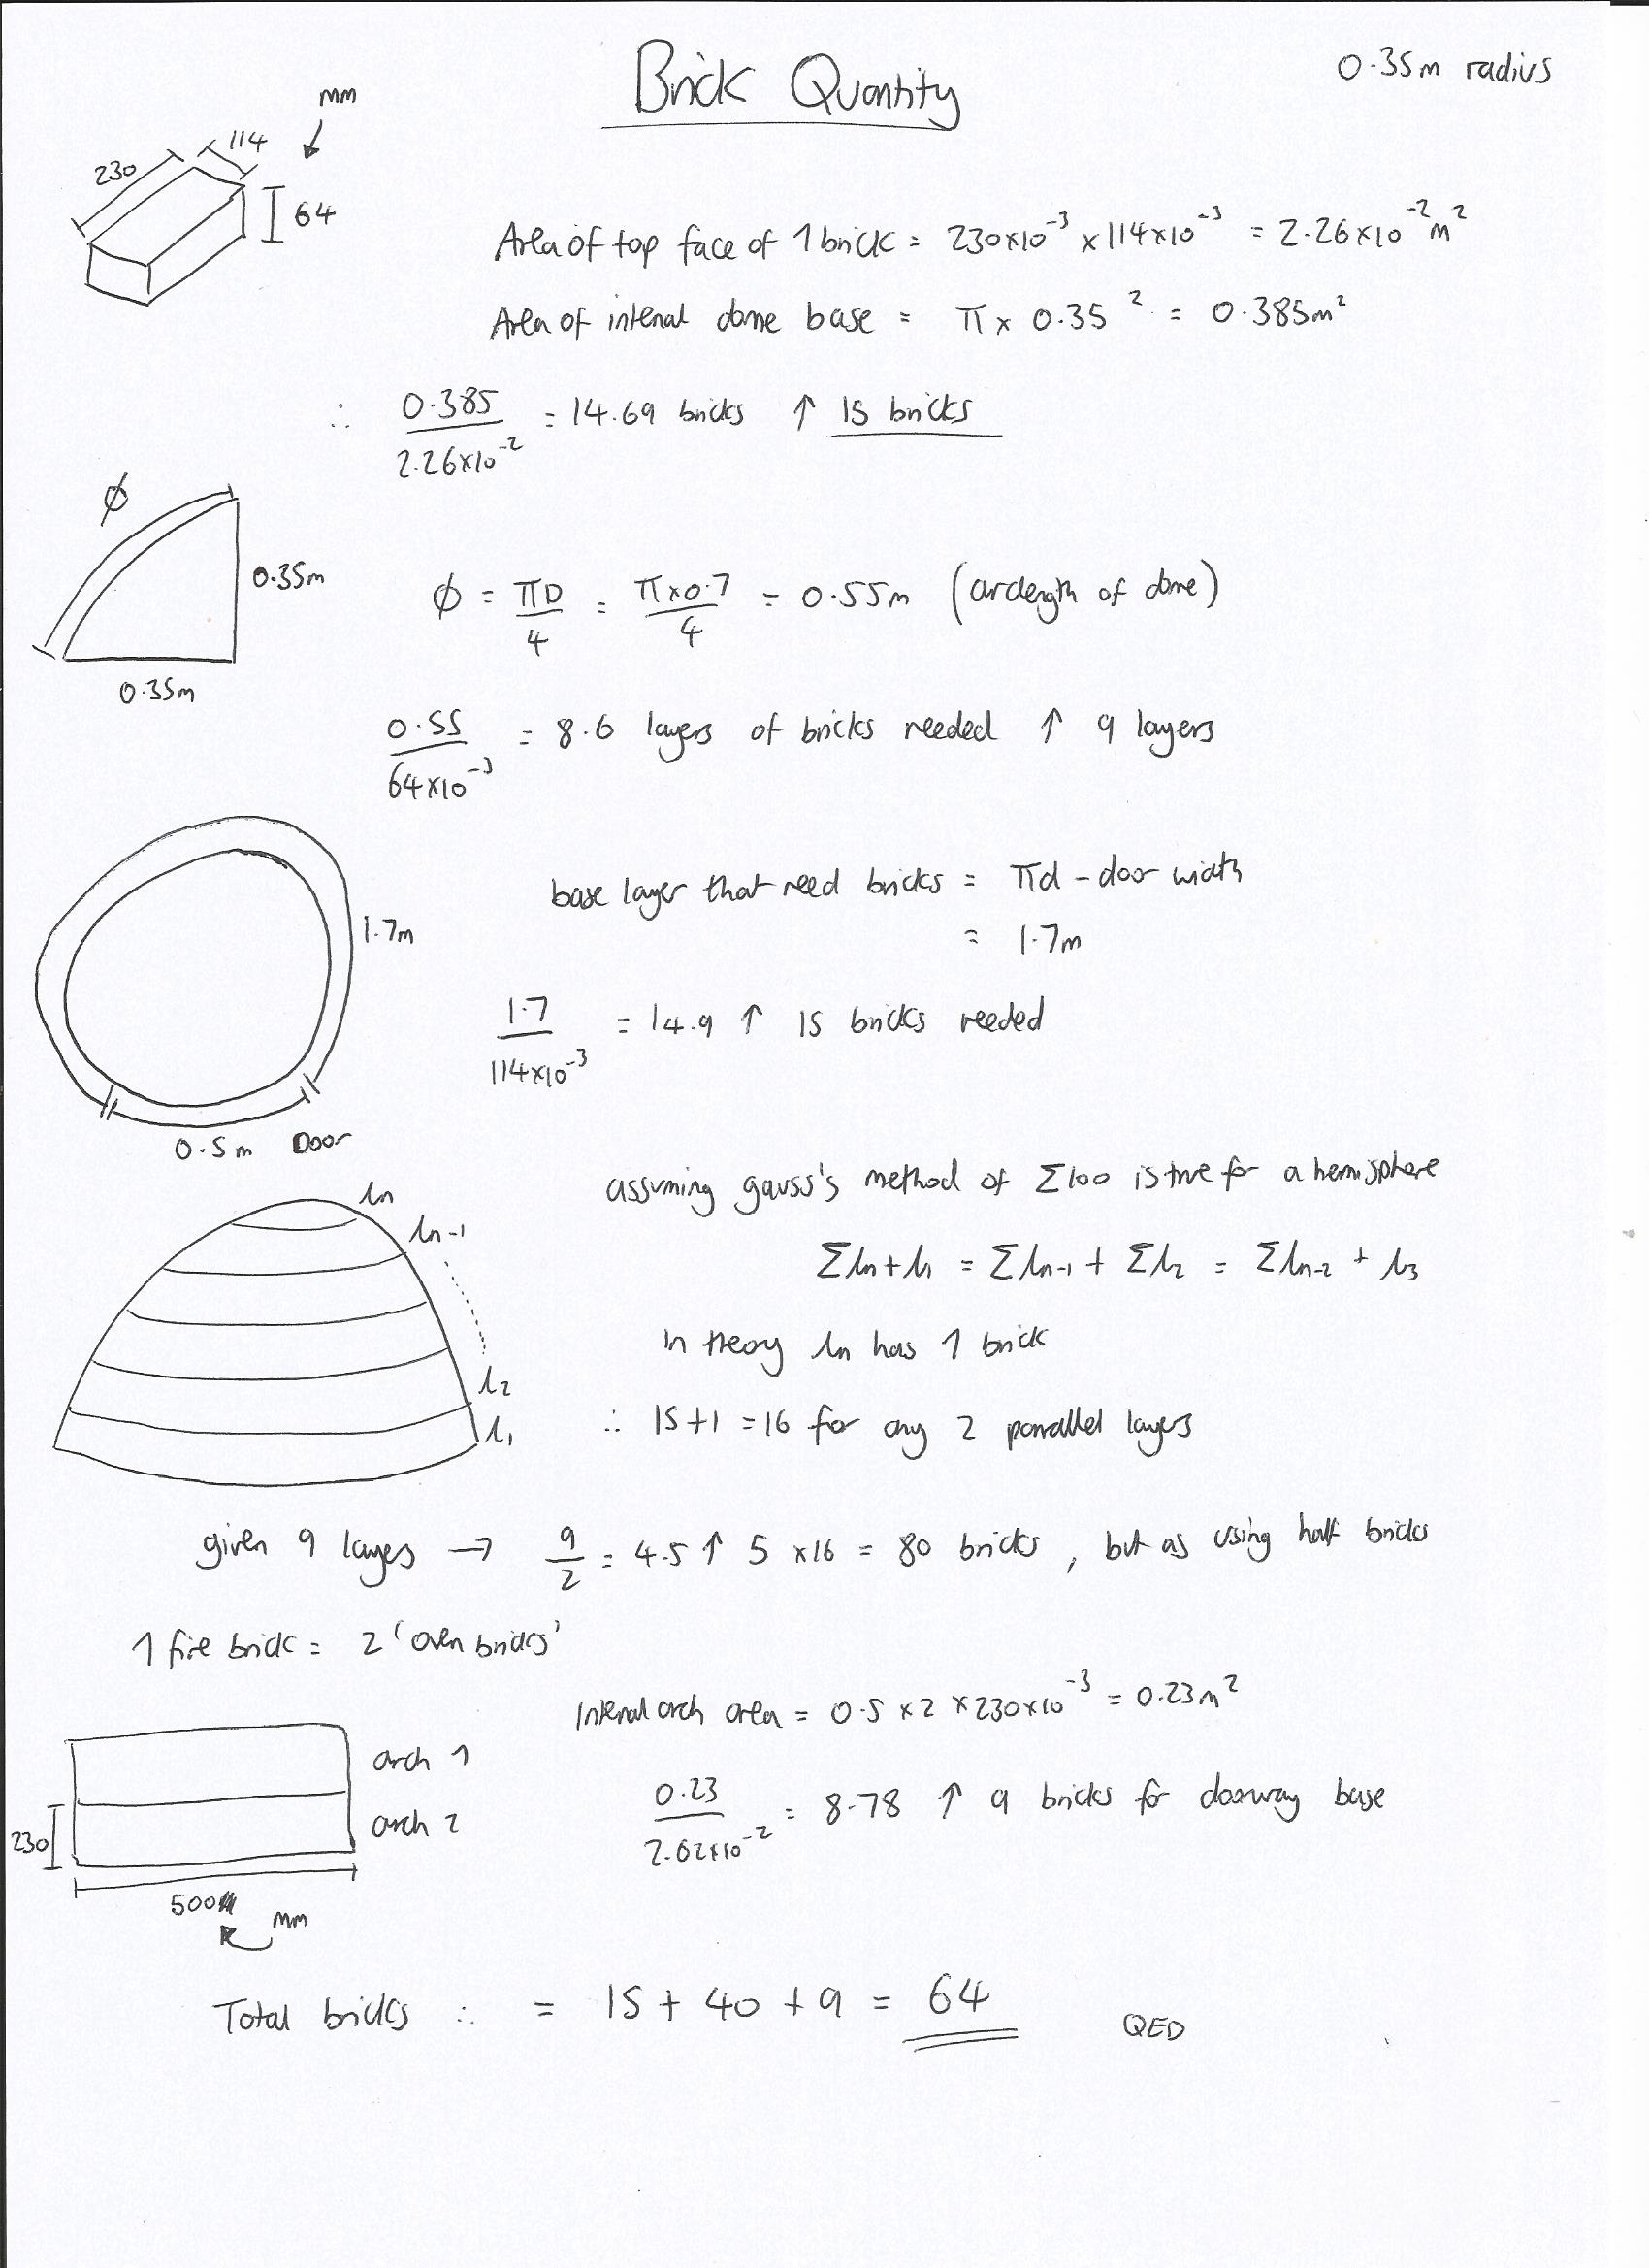 Brick Quantity
0.35m radius
mm
230
114
64
Area of top face of 1 brick = 230x10⁻³ x 114x10⁻³ = 2.26x10⁻² m²
Area of internal dome base = π x 0.35² = 0.385m²
∴ 0.385 / 2.26x10⁻² = 14.69 bricks ↑ 15 bricks
ϕ
0.35m
0.35m
ϕ = πD/4 = πx0.7/4 = 0.55m (arclength of dome)
0.55 / 64x10⁻³ = 8.6 layers of bricks needed ↑ 9 layers
base layer that need bricks = πd - door width
= 1.7m
1.7m
1.7 / 114x10⁻³ = 14.9 ↑ 15 bricks needed
0.5m Door
assuming gauss's method of Σ100 is true for a hemisphere
ln
ln-1
l2
l1
Σln + l1 = Σln-1 + Σl2 = Σln-2 + l3
in theory ln has 1 brick
∴ 15+1 = 16 for any 2 parrallel layers
given 9 layers → 9/2 = 4.5 ↑ 5 x16 = 80 bricks, but as using half bricks
1 fire brick = 2 'oven bricks'
Internal arch area = 0.5 x 2 x 230x10⁻³ = 0.23m²
arch 1
arch 2
230
500
mm
0.23 / 2.62x10⁻² = 8.78 ↑ 9 bricks for doorway base
Total bricks ∴ = 15 + 40 + 9 = 64
QED